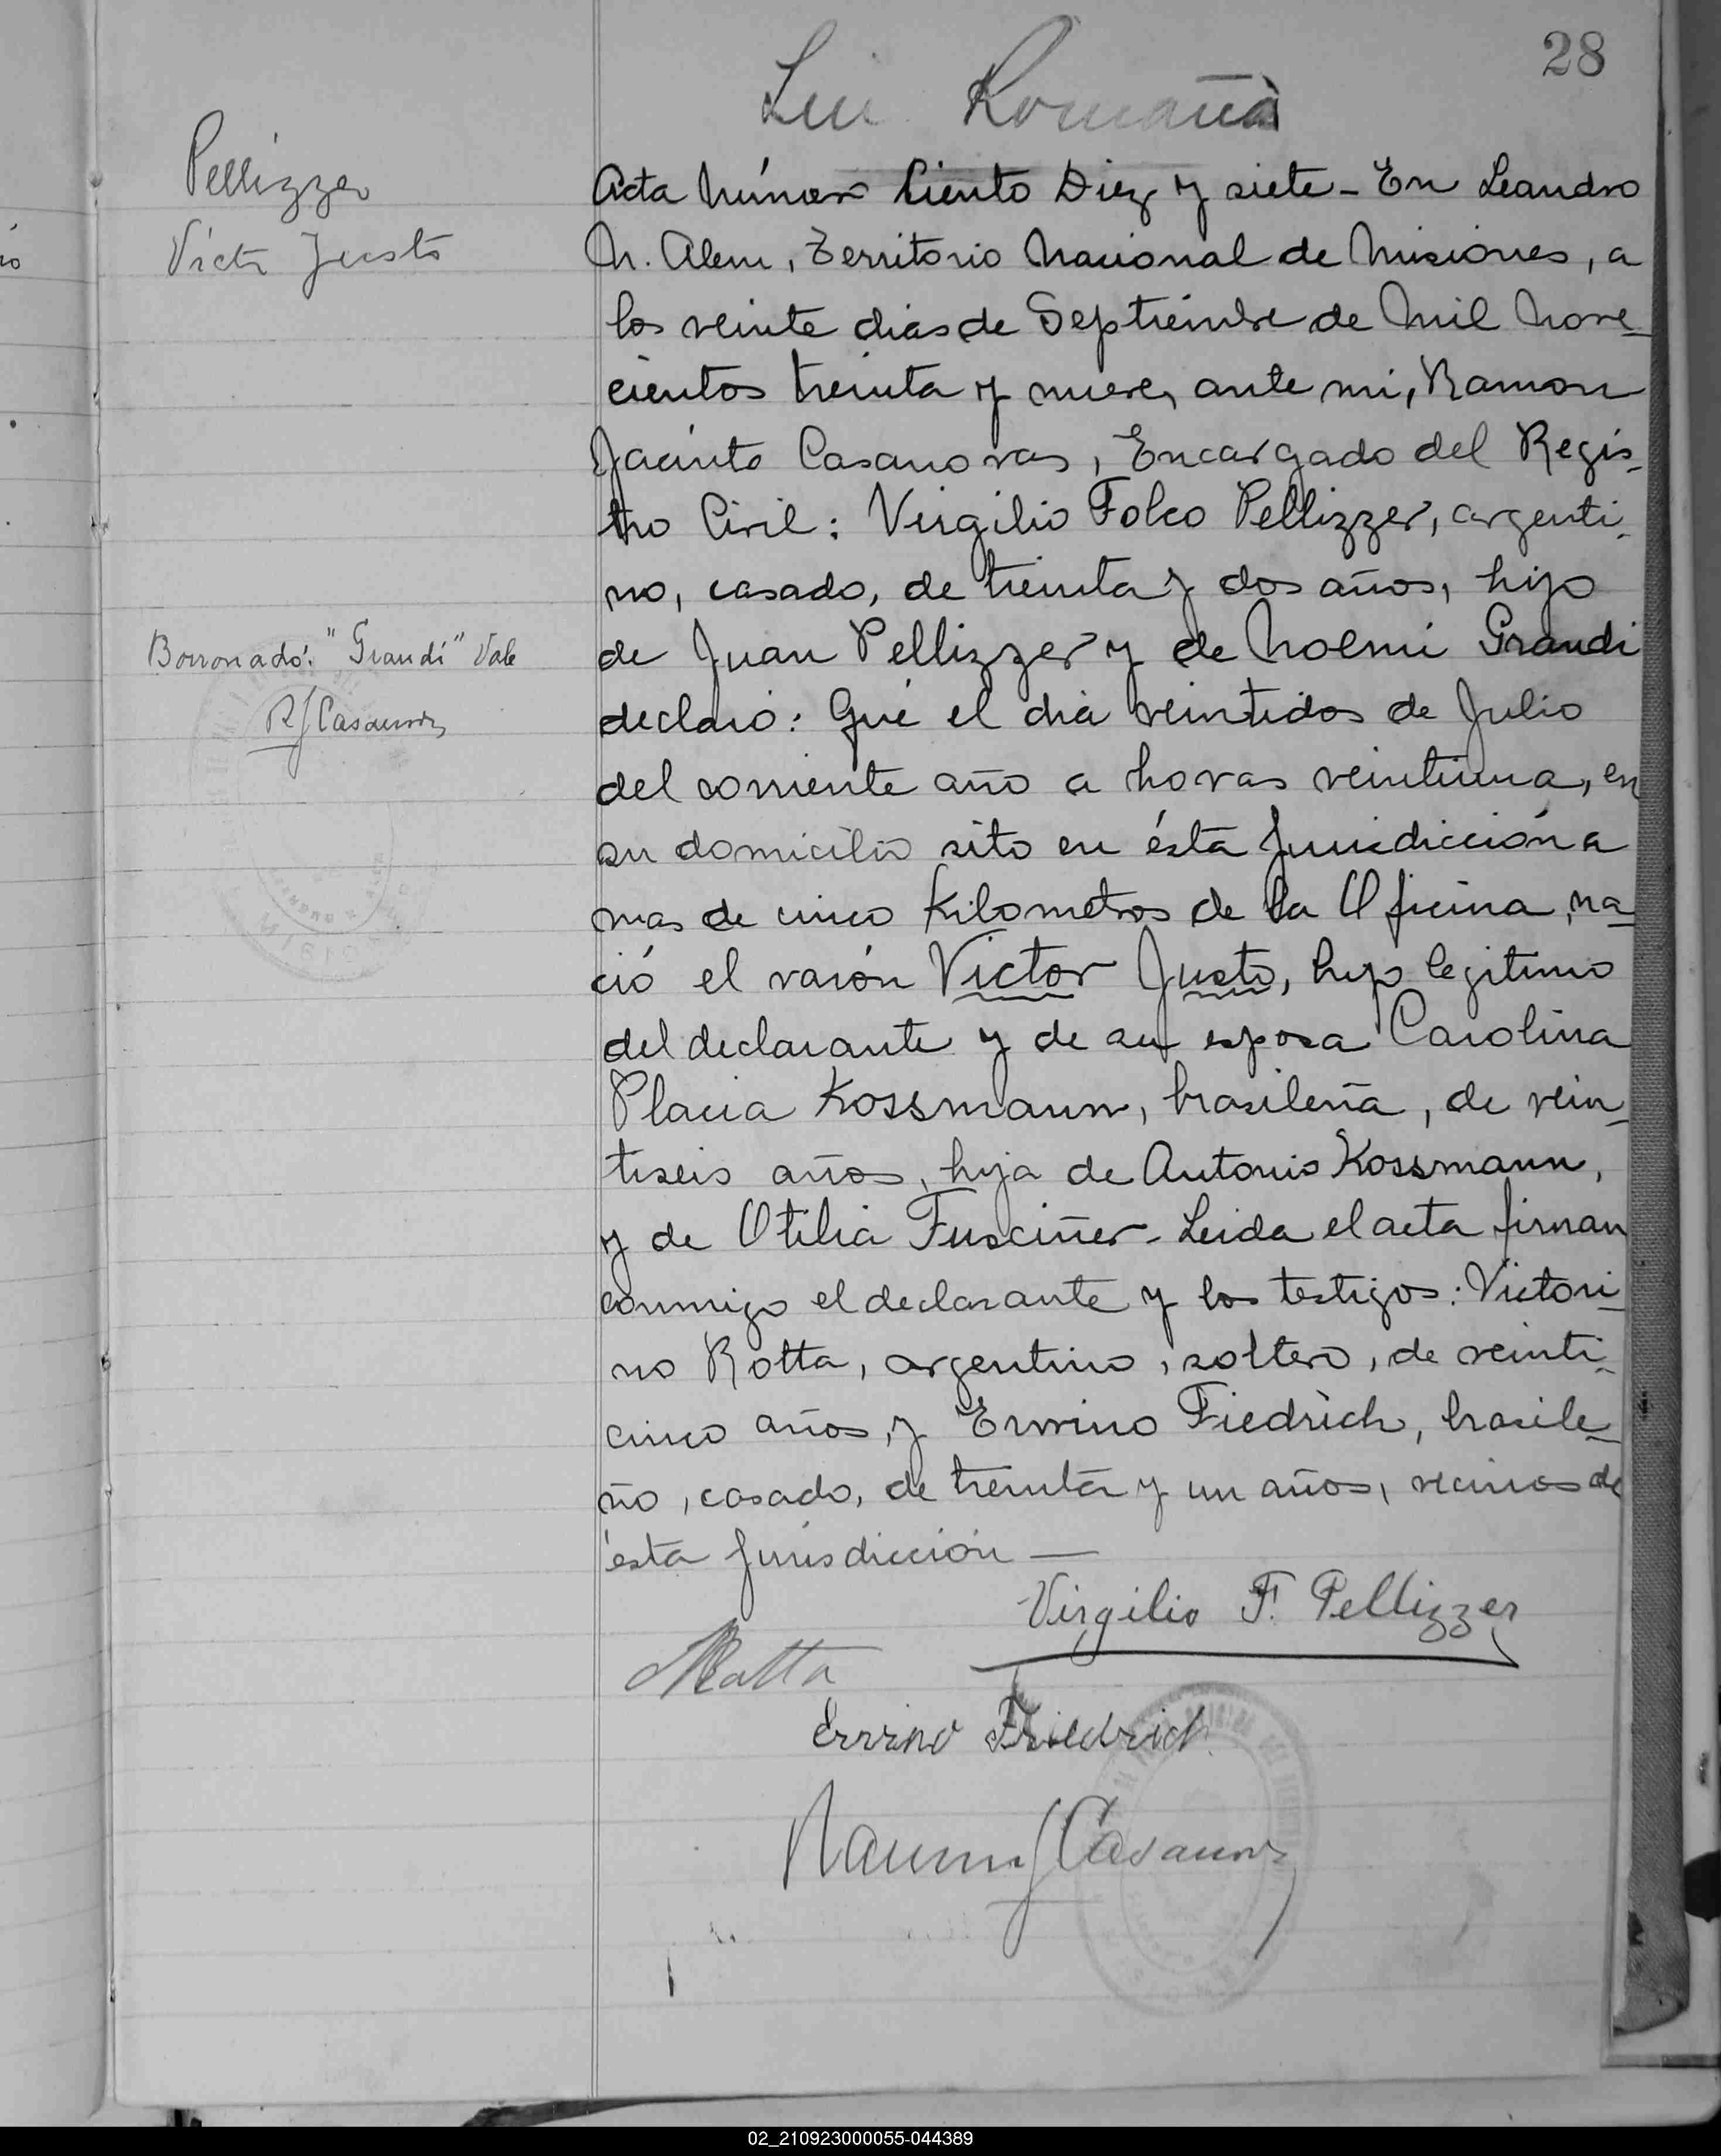 28
Luis Romaña
Pellizzer
Victor Justo
Acta Número Ciento Diez y siete - En Leandro
N. Alem, Territorio Nacional de Misiones, a
los veinte dias de Septiembre de Mil Nove-
cientos treinta y nueve, ante mi, Ramon
Jacinto Casanovas, Encargado del Regis-
tro Civil: Virgilio Folco Pellizzer, argenti-
no, casado, de treinta y dos años, hijo
de Juan Pellizzer y de Noemi Grandi
Borronado: "Grandi" Vale
RJCasanovas
declaró: Qué el dia veintidos de Julio
del corriente año a horas veintiuna, en
su domicilio sito en ésta Jurisdicción a
mas de cinco Kilometros de la Oficina, na-
ció el varón Victor Justo, hijo legitimo
del declarante y de su esposa Carolina
Placia Kossmann, brasileña, de vein-
tiseis años, hija de Antonio Kossmann,
y de Otilia Fusciñer - Leida el acta firman
conmigo el declarante y los testigos: Victori-
no Rotta, argentino, soltero, de veinti-
cinco años, y Erwino Fiedrich, brasile-
ño, casado, de treinta y un años, vecinos de
ésta jurisdicción —
Virgilio F. Pellizzer
Rotta
Erwino Friedrich
Ramon J Casanovas
02_210923000055-044389